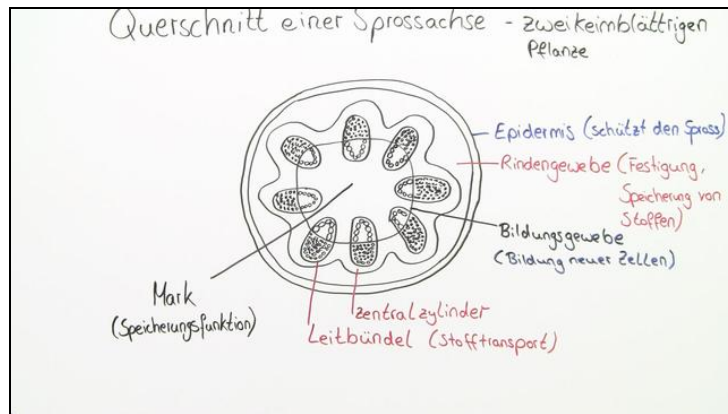 Querschnitt einer Sprossachse - zweikeimblättrigen
Pflanze
Epidermis (schützt den Spross)
Rindengewebe (Festigung,
Speicherung von
Stoffen)
Bildungsgewebe
(Bildung neuer Zellen)
Mark
(Speicherungsfunktion)
Zentralzylinder
Leitbündel (Stofftransport)